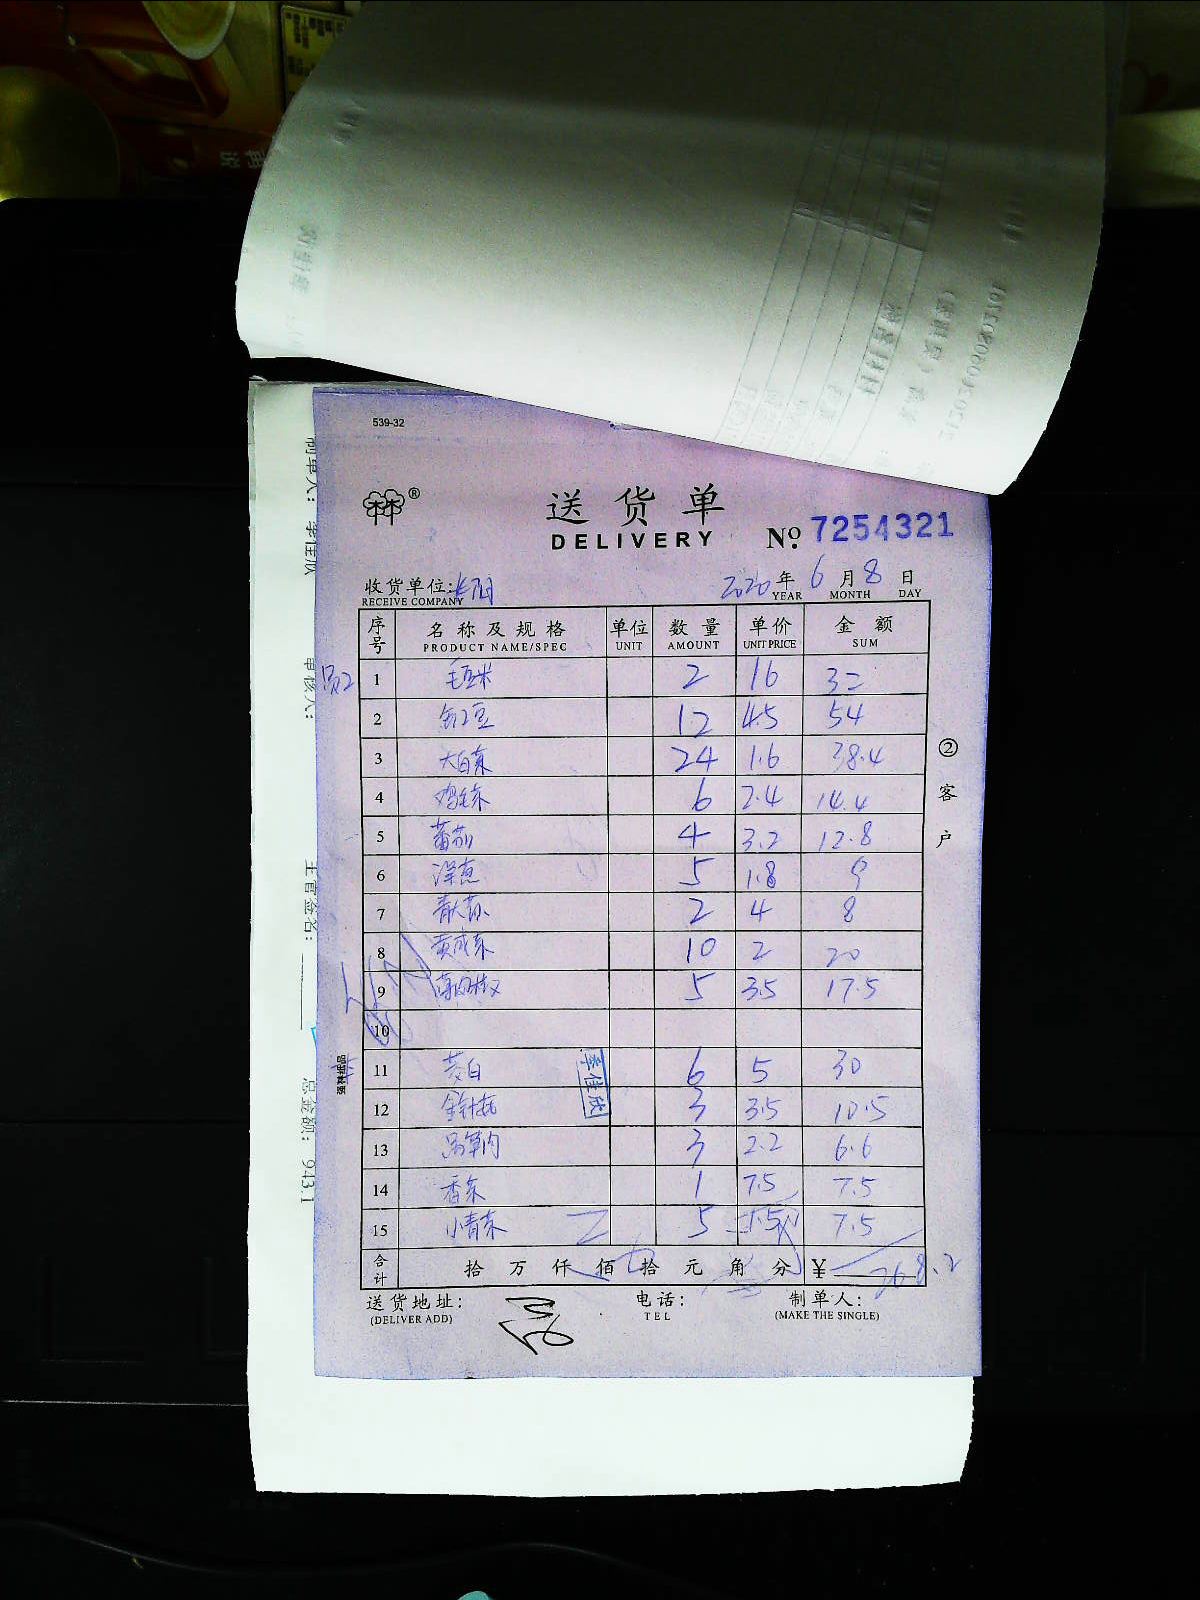 539-32
®
送货单
DELIVERY
No. 7254321
收货单位:
RECEIVE COMPANY
2020 年 6 月 8 日
YEAR MONTH DAY
序号 名称及规格 单位 数量 单价 金额
PRODUCT NAME/SPEC UNIT AMOUNT UNIT PRICE SUM
1 毛豆米 2 16 32
2 12 4.5 54
3 大白菜 24 1.6 38.4
4 鸡毛菜 6 2.4 14.4
5 蕃茄 4 3.2 12.8
6 洋葱 5 1.8 9
7 2 4 8
8 10 2 20
9 5 3.5 17.5
10
11 茭白 6 5 30
12 金针菇 3 3.5 10.5
13 3 2.2 6.6
14 香菜 1 7.5 7.5
15 小青菜 5 1.5 7.5
合计 拾 万 仟 佰 拾 元 角 分 ¥ 268.2
送货地址: 电话: 制单人:
(DELIVER ADD) TEL (MAKE THE SINGLE)
② 客户
李佳欣
制单人: 李佳欣
审核人:
主管签名:
总金额: 943.1